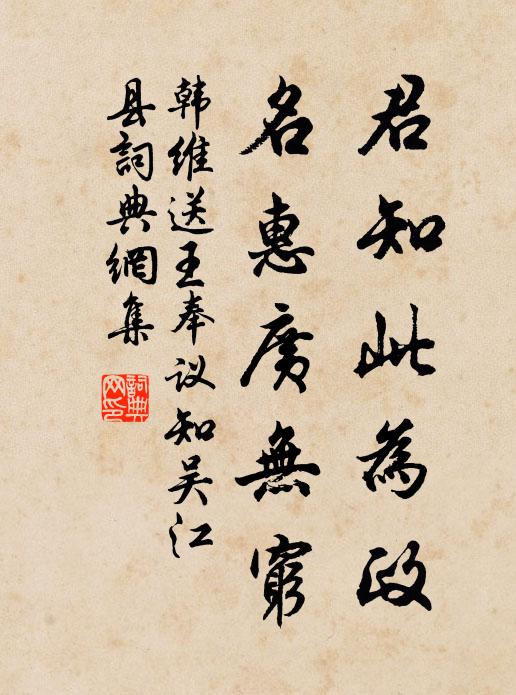 君知此為政
名惠廣無窮
韩維送王奉议知吴江
县詞典網集
詞典网印